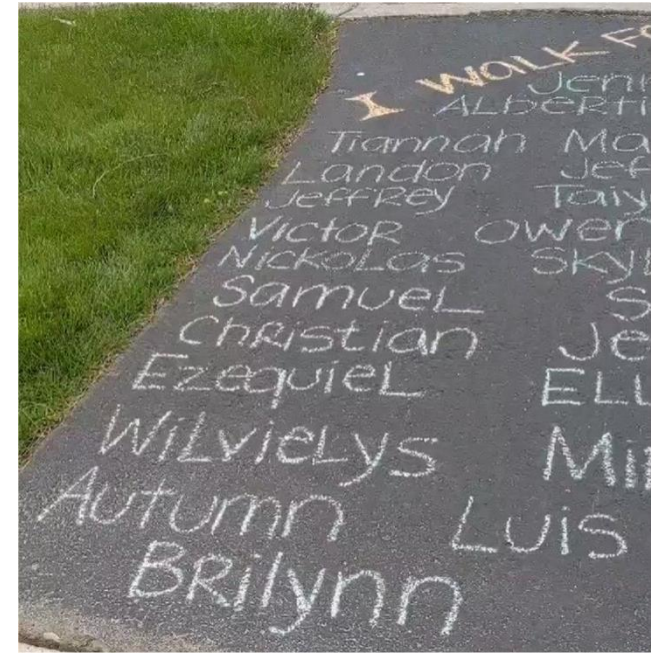 I WALK FO
Jenn
ALberti
Tiannah Ma
Landon Jef
JeffRey Taiy
Victor Owen
NickoLas SkyL
SamueL S
ChRistian Je
EzequieL ELL
WiLvieLys Mi
Autumn Luis
BRilynn